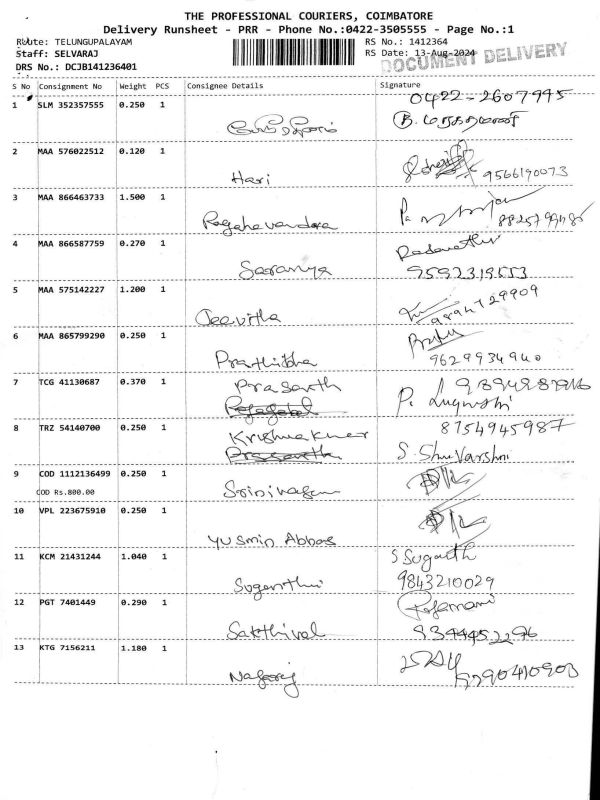 THE PROFESSIONAL COURIERS, COIMBATORE
Delivery Runsheet - PRR - Phone No.:0422-3505555 - Page No.:1
Route: TELUNGUPALAYAM RS No.: 1412364
Staff: SELVARAJ RS Date: 13-Aug-2024
DOCUMENT DELIVERY
DRS No.: DCJB141236401
S No Consignment No Weight PCS Consignee Details Signature
1 SLM 352357555 0.250 1 0422-2607995
2 MAA 576022512 0.120 1 Hari 9566190073
3 MAA 866463733 1.500 1 Ragahavandara
4 MAA 866587759 0.270 1 Saranya
5 MAA 575142227 1.200 1 Jeevitha
6 MAA 865799290 0.250 1 Prathibha 9629934940
7 TCG 41130687 0.370 1 Prasanth
8 TRZ 54140700 0.250 1 Krishnakumar 8754945987
Prasanth S. Shuvarshni
9 COD 1112136499 0.250 1 Srinivasan
COD Rs.800.00
10 VPL 223675910 0.250 1 Yusmin Abbas
11 KCM 21431244 1.040 1 Suganthi 9843210029
12 PGT 7401449 0.290 1 Sakthivel 9344452296
13 KTG 7156211 1.180 1 Nagaraj